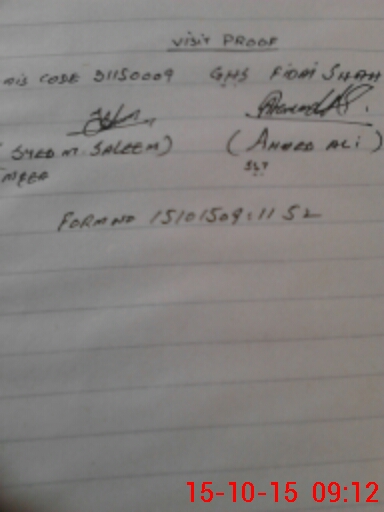 VISIT PROOF
MIS CODE 31150009 GHS FIDAI SHAH
(SYED M. SALEEM) (AHMED ALI)
SLT
FORM NO 15101509:1152
15-10-15 09:12